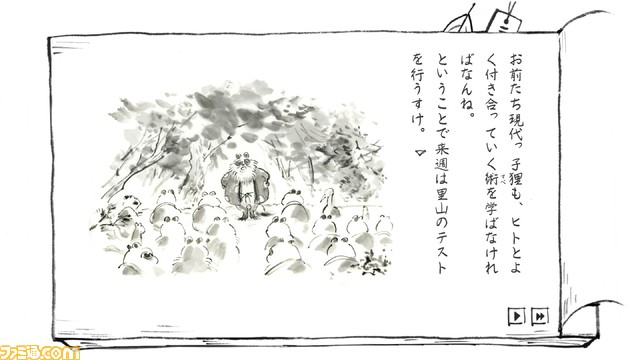 お前たち現代っ子狸も、ヒトとよ
く付き合っていく術を学ばなけれ
すべ
ばなんね。
ということで来週は里山のテスト
を行うすけ。▽
ファミ通.com